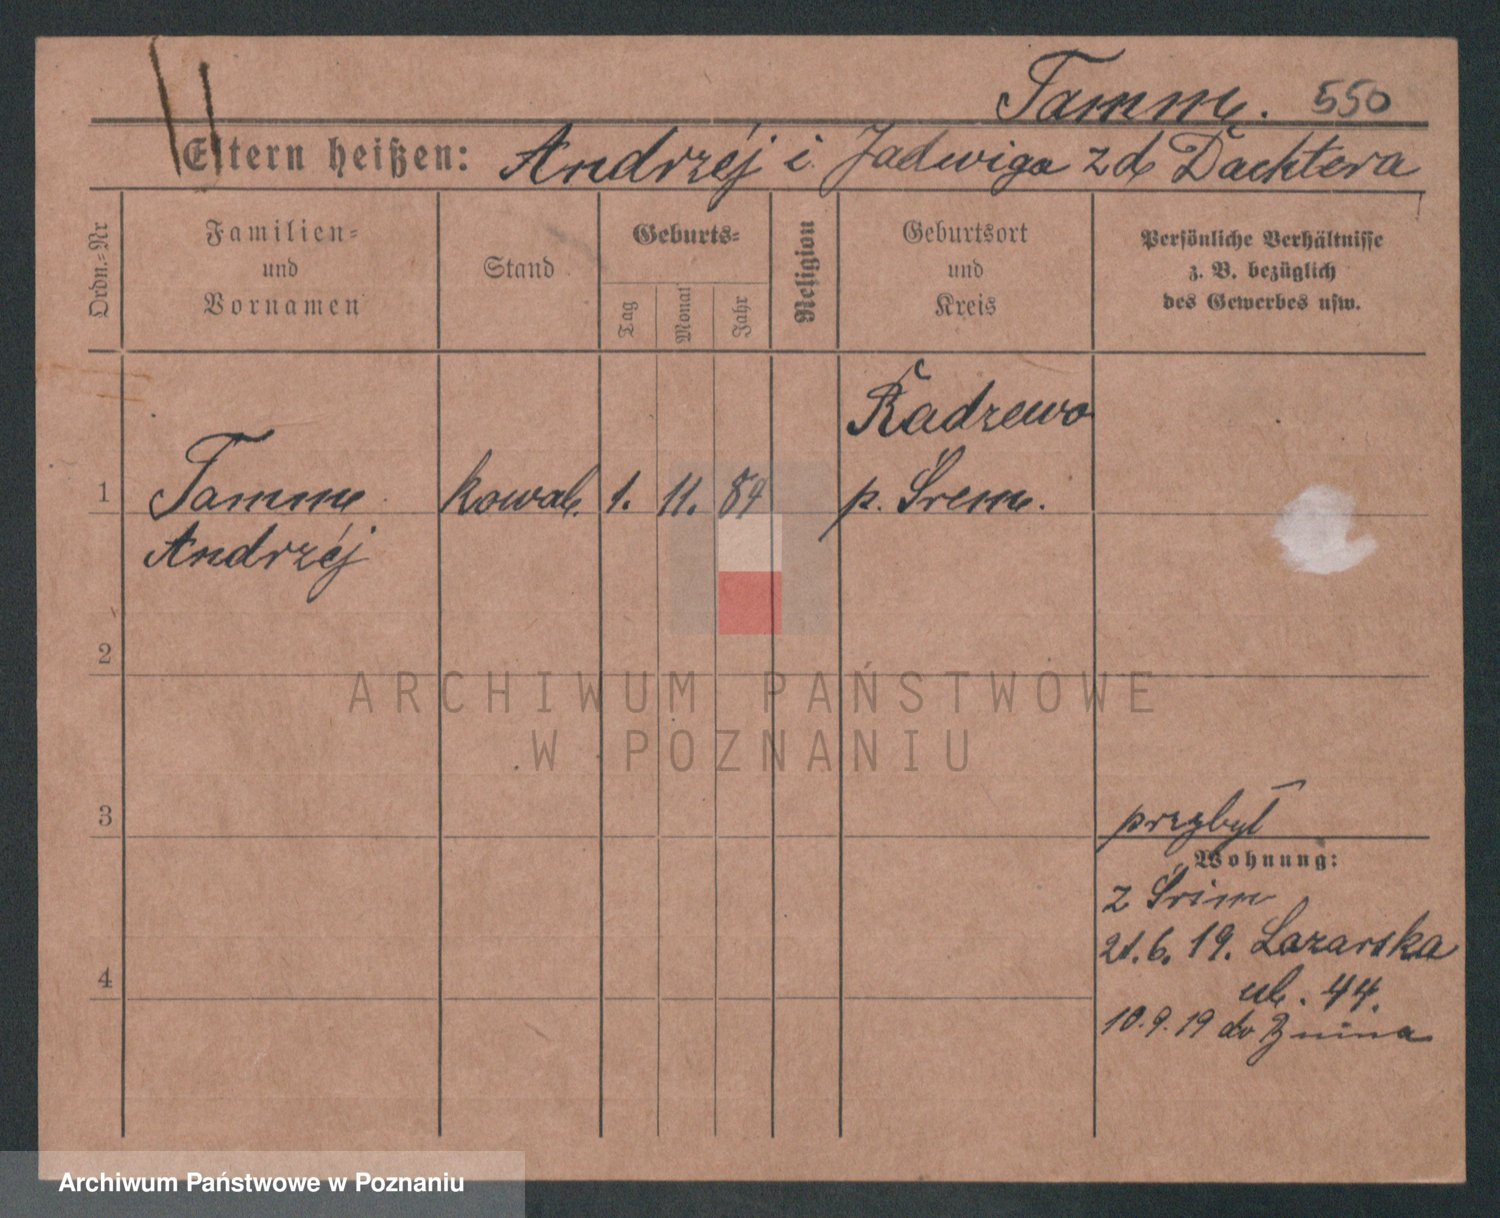 Tamme. 550
Eltern heißen: Andrzéj i Jadwiga z d Dachtera
Ordn.-Nr
Familien-
und
Vornamen
Stand
Geburts-
Tag
Monat
Jahr
Religion
Geburtsort
und
Kreis
Persönliche Verhältnisse
z. B. bezüglich
des Gewerbes usw.
1 Tamme kowal. 1. 11. 84 Radzewo
p. Śrem.
Andrzéj
2
ARCHIWUM PAŃSTWOWE
W POZNANIU
3
przybył
Wohnung:
z Śrim
21. 6. 19. Łazarska
ul. 44.
4
10. 9. 19 do Żnina
Archiwum Państwowe w Poznaniu